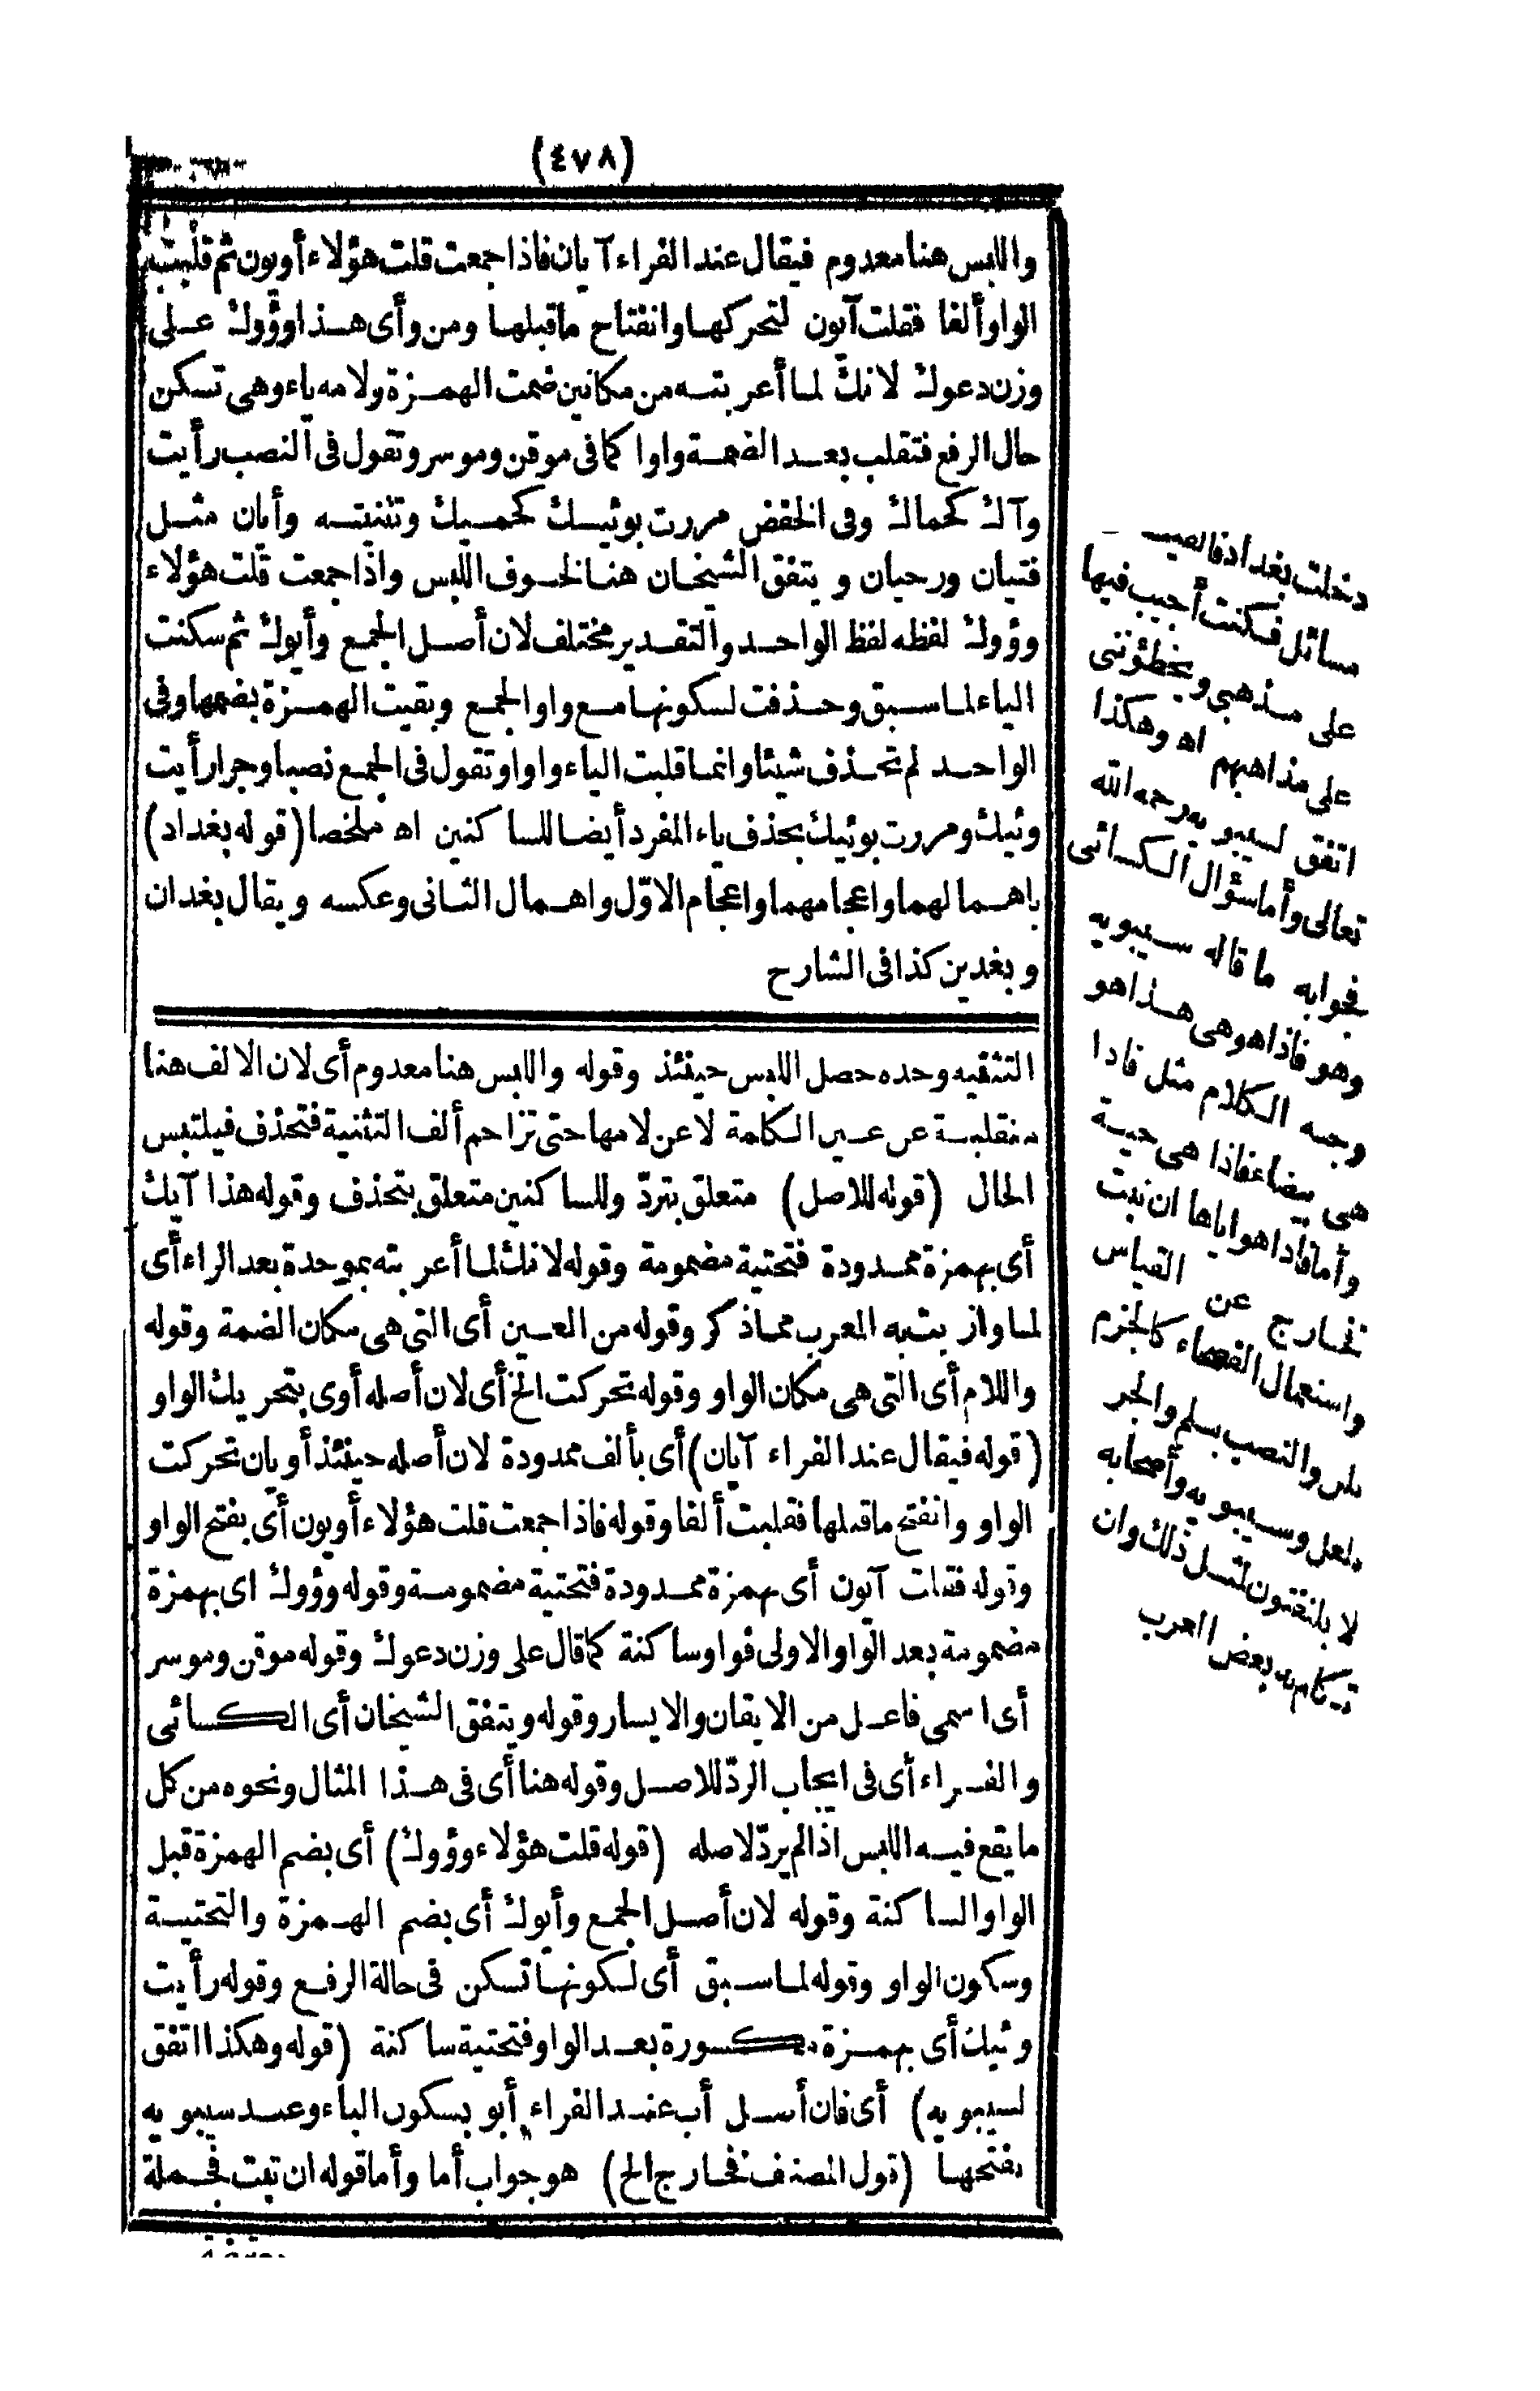 (٤٧٨)
واللبس هنا معدوم فيقال عند الفراء آيان فاذا جمعت قلت هؤلاء أويون ثم قلبت
الواو ألفا فقلت آيون لتحركها وانفتاح ماقبلها ومن وأى هذا وؤوك على
وزن دعوك لانك لما أعربته من مكانين ضمت الهمزة ولامه ياء وهى تسكن
حال الرفع فتقلب بعد الضمة واوا كما فى موقن وموسر وتقول فى النصب رأيت
وآك كحماك وفى الخفض مررت بوئيك كحميك وتثنيته وأيان مثل
فتيان ورحيان ويتفق الشيخان هنا لخوف اللبس واذا جمعت قلت هؤلاء
وؤوك لفظه لفظ الواحد والتقدير مختلف لان أصل الجمع وأيوك ثم سكنت
الياء لما سبق وحذفت لسكونها مع واو الجمع وبقيت الهمزة بضمها وفى
الواحد لم تحذف شيئا وانما قلبت الياء واوا وتقول فى الجمع نصبا وجرا رأيت
وئيك ومررت بوئيك بحذف ياء المفرد أيضا للساكنين اه ملخصا (قوله بغداد)
باهمالهما واعجامهما واعجام الاوّل واهمال الثانى وعكسه ويقال بغدان
وبغدين كذا فى الشارح
التثنيه وحده حصل اللبس حينئذ وقوله واللبس هنا معدوم أى لان الالف هنا
منقلبة عن عين الكلمة لا عن لامها حتى تزاحم ألف التثنية فتحذف فيلتبس
الحال (قوله للاصل) متعلق بتردّ وللساكنين متعلق بتحذف وقوله هذا آيك
أى بهمزة ممدودة فتحتية مضمومة وقوله لانك لما أعربته بموحدة بعد الراء أى
لما وازيته المعرب مماذكر وقوله من العين أى التى هى مكان الضمة وقوله
واللام أى التى هى مكان الواو وقوله تحركت الخ أى لان أصله أوى بتحريك الواو
(قوله فيقال عند الفراء آيان) أى بألف ممدودة لان أصله حينئذ أويان تحركت
الواو وانفتح ماقبلها فقلبت ألفا وقوله فاذا جمعت قلت هؤلاء أويون أى بفتح الواو
وقوله فقلت آيون أى بهمزة ممدودة فتحتية مضمومة وقوله وؤوك اى بهمزة
مضمومة بعد الواو الاولى فواو ساكنة كما قال على وزن دعوك وقوله موقن وموسر
أى اسمى فاعل من الايقان والايسار وقوله ويتفق الشيخان أى الكسائى
والفراء أى فى ايجاب الردّ للاصل وقوله هنا أى فى هذا المثال ونحوه من كل
مايقع فيه اللبس اذا لم يردّ لاصله (قوله قلت هؤلاء وؤوك) أى بضم الهمزة قبل
الواو الساكنة وقوله لان أصل الجمع وأيوك أى بضم الهمزة والتحتية
وسكون الواو وقوله لما سبق أى لكونها تسكن فى حالة الرفع وقوله رأيت
وئيك أى بهمزة مكسورة بعد الواو فتحتية ساكنة (قوله وهكذا اتفق
لسيبويه) أى فان أصل أب عند الفراء أبو بسكون الباء وعند سيبويه
بفتحها (قول المصنف فخارج الخ) هو جواب أما وأما قوله ان ثبت فجملة
دخلت بغداد فألقيت
مسائل فكنت أجيب فيها
على مذهبى ويخطؤننى
على مذاهبهم اه وهكذا
اتفق لسيبويه رحمه الله
تعالى وأما سؤال الكسائى
فجوابه ماقاله سيبويه
وهو فاذا هو هى هذا هو
وجه الكلام مثل فاذا
هى بيضاء فاذا هى حية
وأما فاذا هو اياها ان ثبت
فخارج عن القياس
واستعمال الفصحاء كالجزم
بلن والنصب بلم والجر
بلعل وسيبويه وأصحابه
لا يلتفتون لمثل ذلك وان
تكلم به بعض العرب